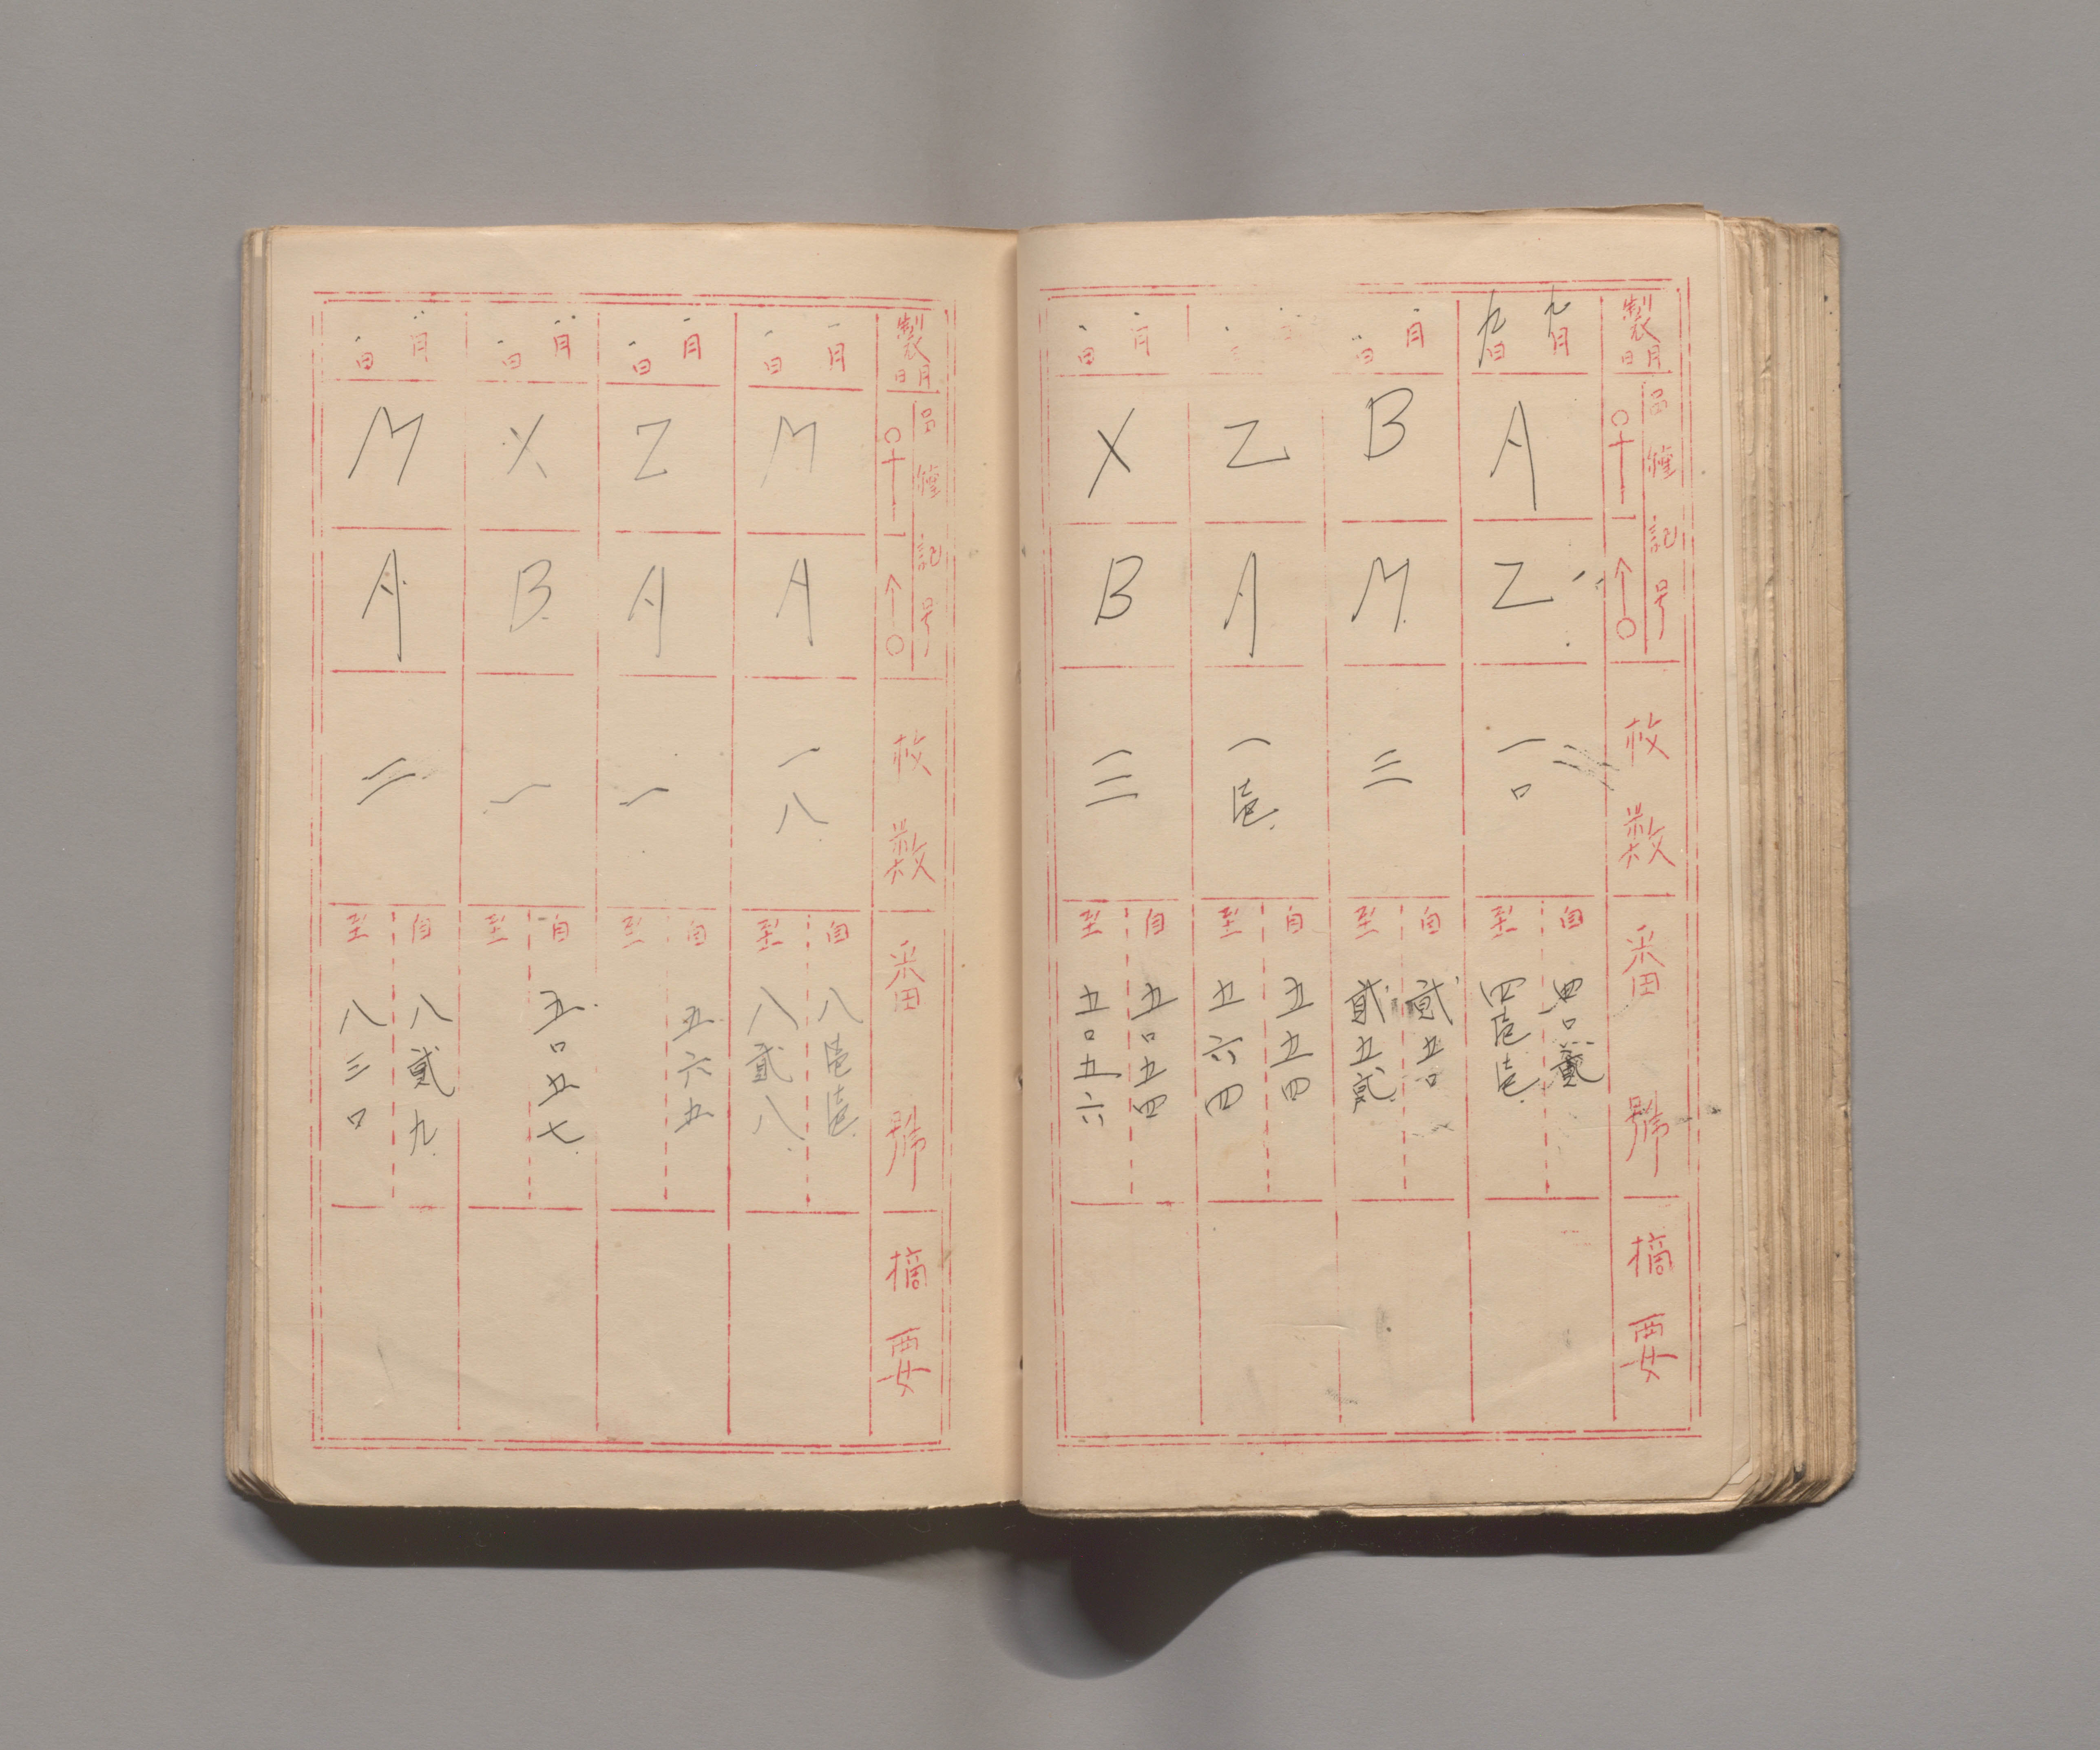 製月日 品種記号 ♀ ↑○ 枚数 番號 摘要
九月九日 A Z 一〇 自四〇貳 至四壱壱
月日 B M 三 自貳五〇 至貳五貳
Z A 一壱 自五五四 至五六四
月日 X B 三 自五〇五四 至五〇五六
製月日 品種記号 ♀ ↑○ 枚数 番號 摘要
月日 M A 一八 自八壱壱 至八貳八
月日 Z A 一 自五六五 至
月日 X B 一 自五〇五七 至
月日 M A 二 自八貳九 至八三〇